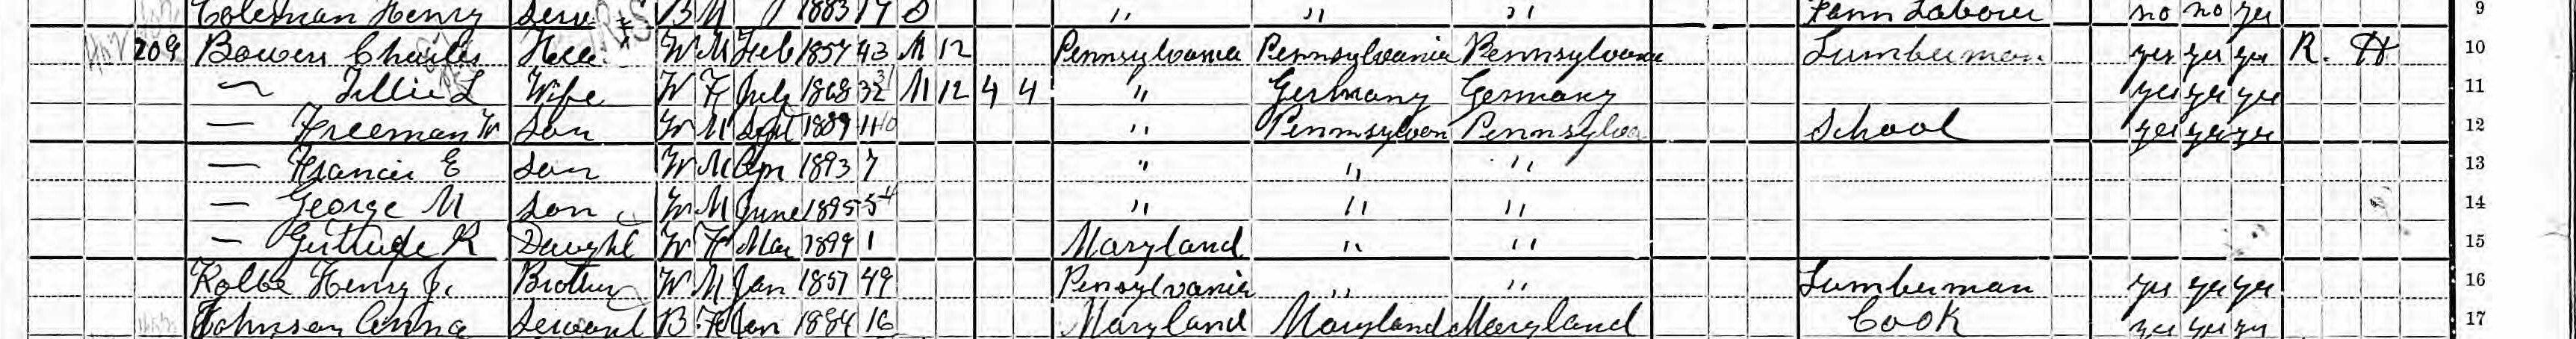 Coleman Henry Serv B M 1883 17 S " " " Farm Labourer no no yes 9
209 Bowers Charles Head W M Feb 1857 43 M 12 Pennsylvania Pennsylvania Pennsylvania Lumberman yes yes yes R. H 10
— Tillie L Wife W F July 1868 32 31 M 12 4 4 " Germany Germany yes yes yes 11
— Freeman W Son W M Sept 1889 11 10 " Pennsylvan Pennsylva School yes yes yes 12
— Francis E Son W M Apr 1893 7 " " " 13
— George M Son W M June 1895 5 4 " " " 14
— Gertrude R Daught W F Mar 1899 1 Maryland " " 15
Kolbe Henry J. Brother W M Jan 1851 49 Pensylvania " " Lumberman yes yes yes 16
Johnson Anna Servant B F Jan 1884 16 Maryland Maryland Maryland Cook yes yes yes 17